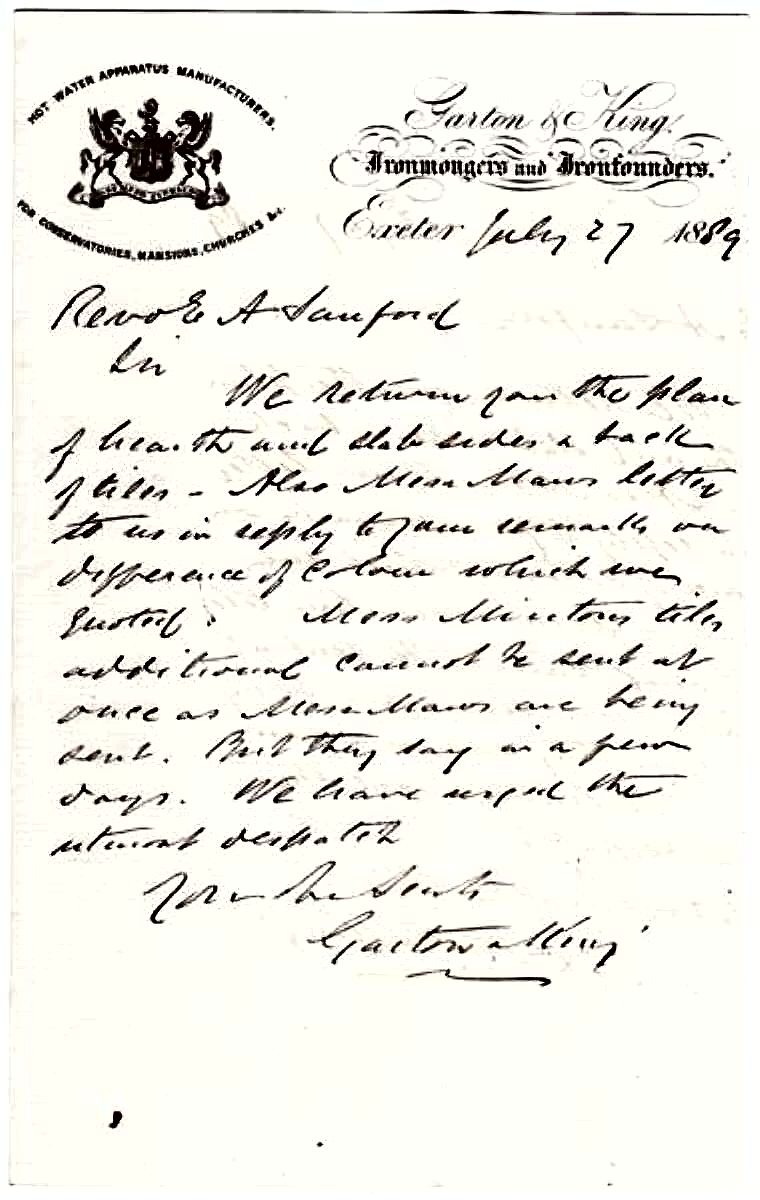 HOT WATER APPARATUS MANUFACTURERS.
FOR CONSERVATORIES, MANSIONS, CHURCHES &c.
Garton & King,
Ironmongers and Ironfounders.
Exeter July 27 1889
Revd E A Sanford
Sir
We return you the plan
of hearth and slab sides & back
of tiles - Also Messrs Maws letter
to us in reply to your remarks on
difference of colour which we
quoted. Messrs Mintons tiles
additional cannot be sent at
once as Messrs Maws are being
sent. But they say in a few
days. We have urged the
utmost despatch
Your
Garton & King